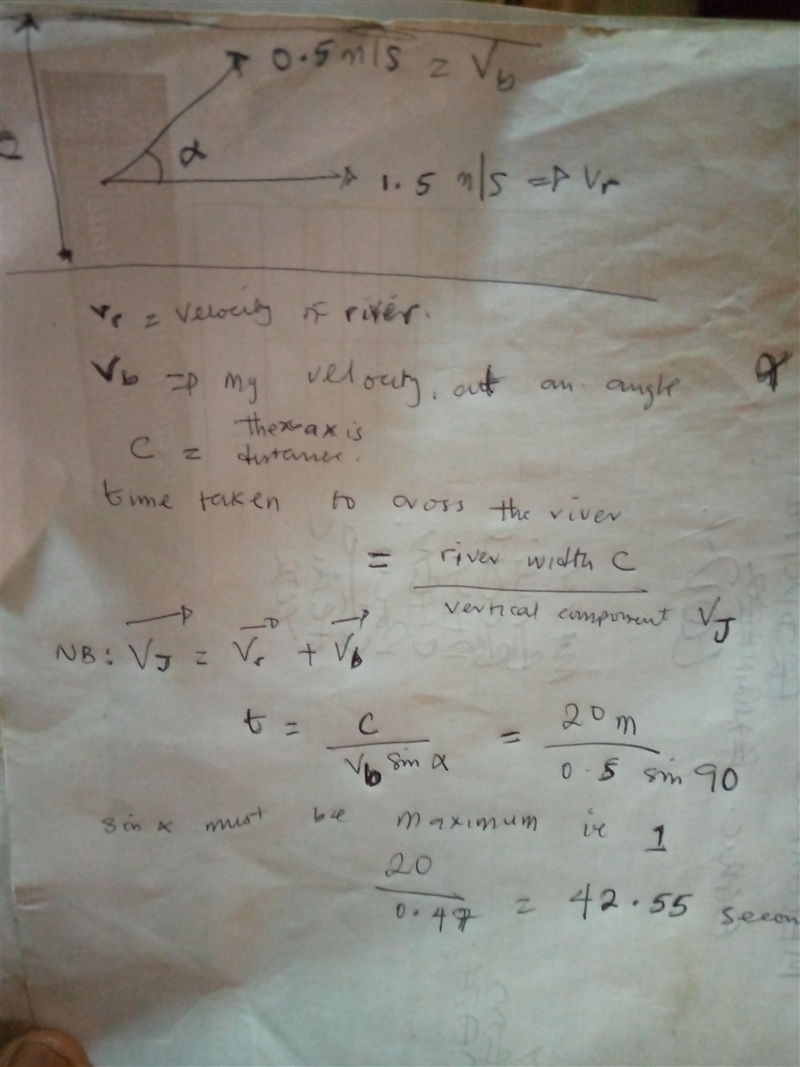 0.5 m/s = Vb
α
1.5 m/s => Vr
Vr = velocity of river.
Vb => my velocity, at an angle α
C = the x-axis distance.
time taken to cross the river
= river width C / vertical component VJ
NB: VJ = Vr + Vb
t = C / Vb sin α = 20 m / 0.5 sin 90
sin α must be maximum ie 1
20 / 0.47 = 42.55 secon